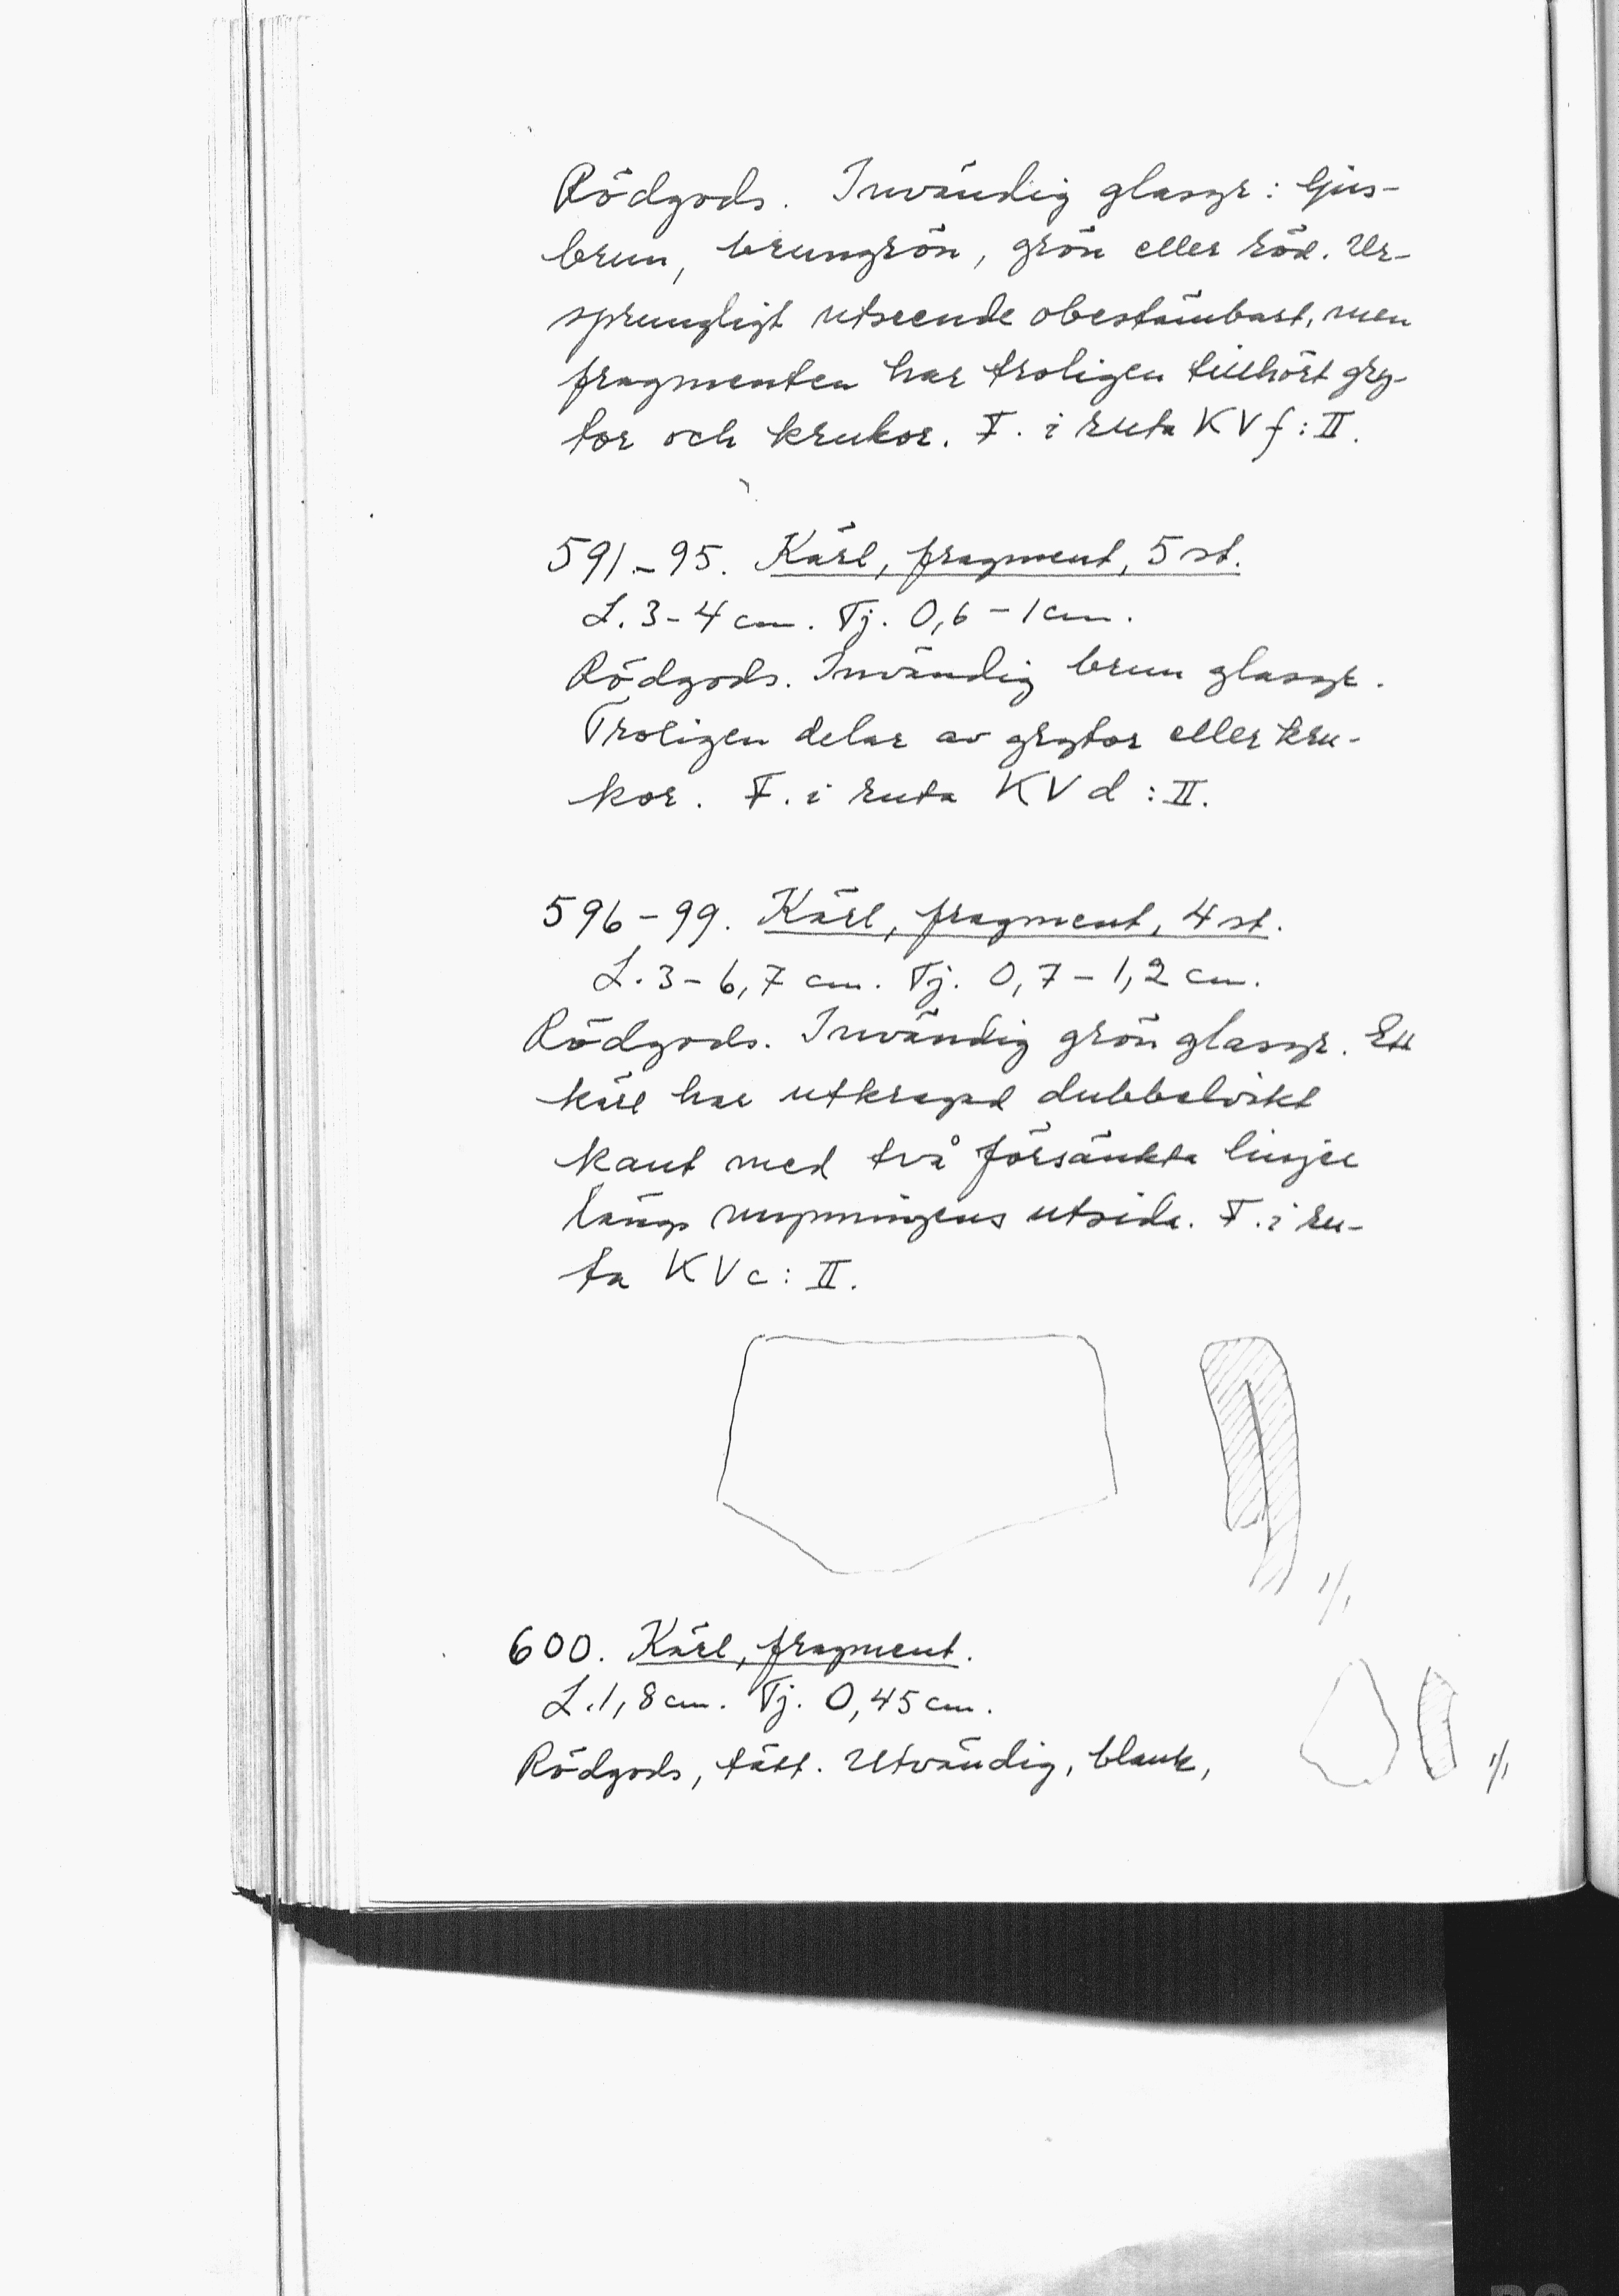 Rödgods. Invändig glasyr: ljus-
brun, brungrön, grön eller röd. Ur-
sprungligt utseende obestämbart, men
fragmenten har troligen tillhört gry-
tor och krukor. F. i ruta KVf:II.
591-95. Kärl, fragment, 5 st.
L. 3-4 cm. Tj. 0,6-1 cm.
Rödgods. Invändig brun glasyr.
Troligen delar av grytor eller kru-
kor. F. i ruta KVd:II.
596-99. Kärl, fragment, 4 st.
L. 3-6,7 cm. Tj. 0,7-1,2 cm.
Rödgods. Invändig grön glasyr. Ett
kärl har utkragad dubbelvikt
kant med två försänkta linjer
längs mynningens utsida. F. i ru-
ta KVc:II.
1/1
600. Kärl, fragment.
L. 1,8 cm. Tj. 0,45 cm.
Rödgods, tätt. Utvändig, blank,
1/1